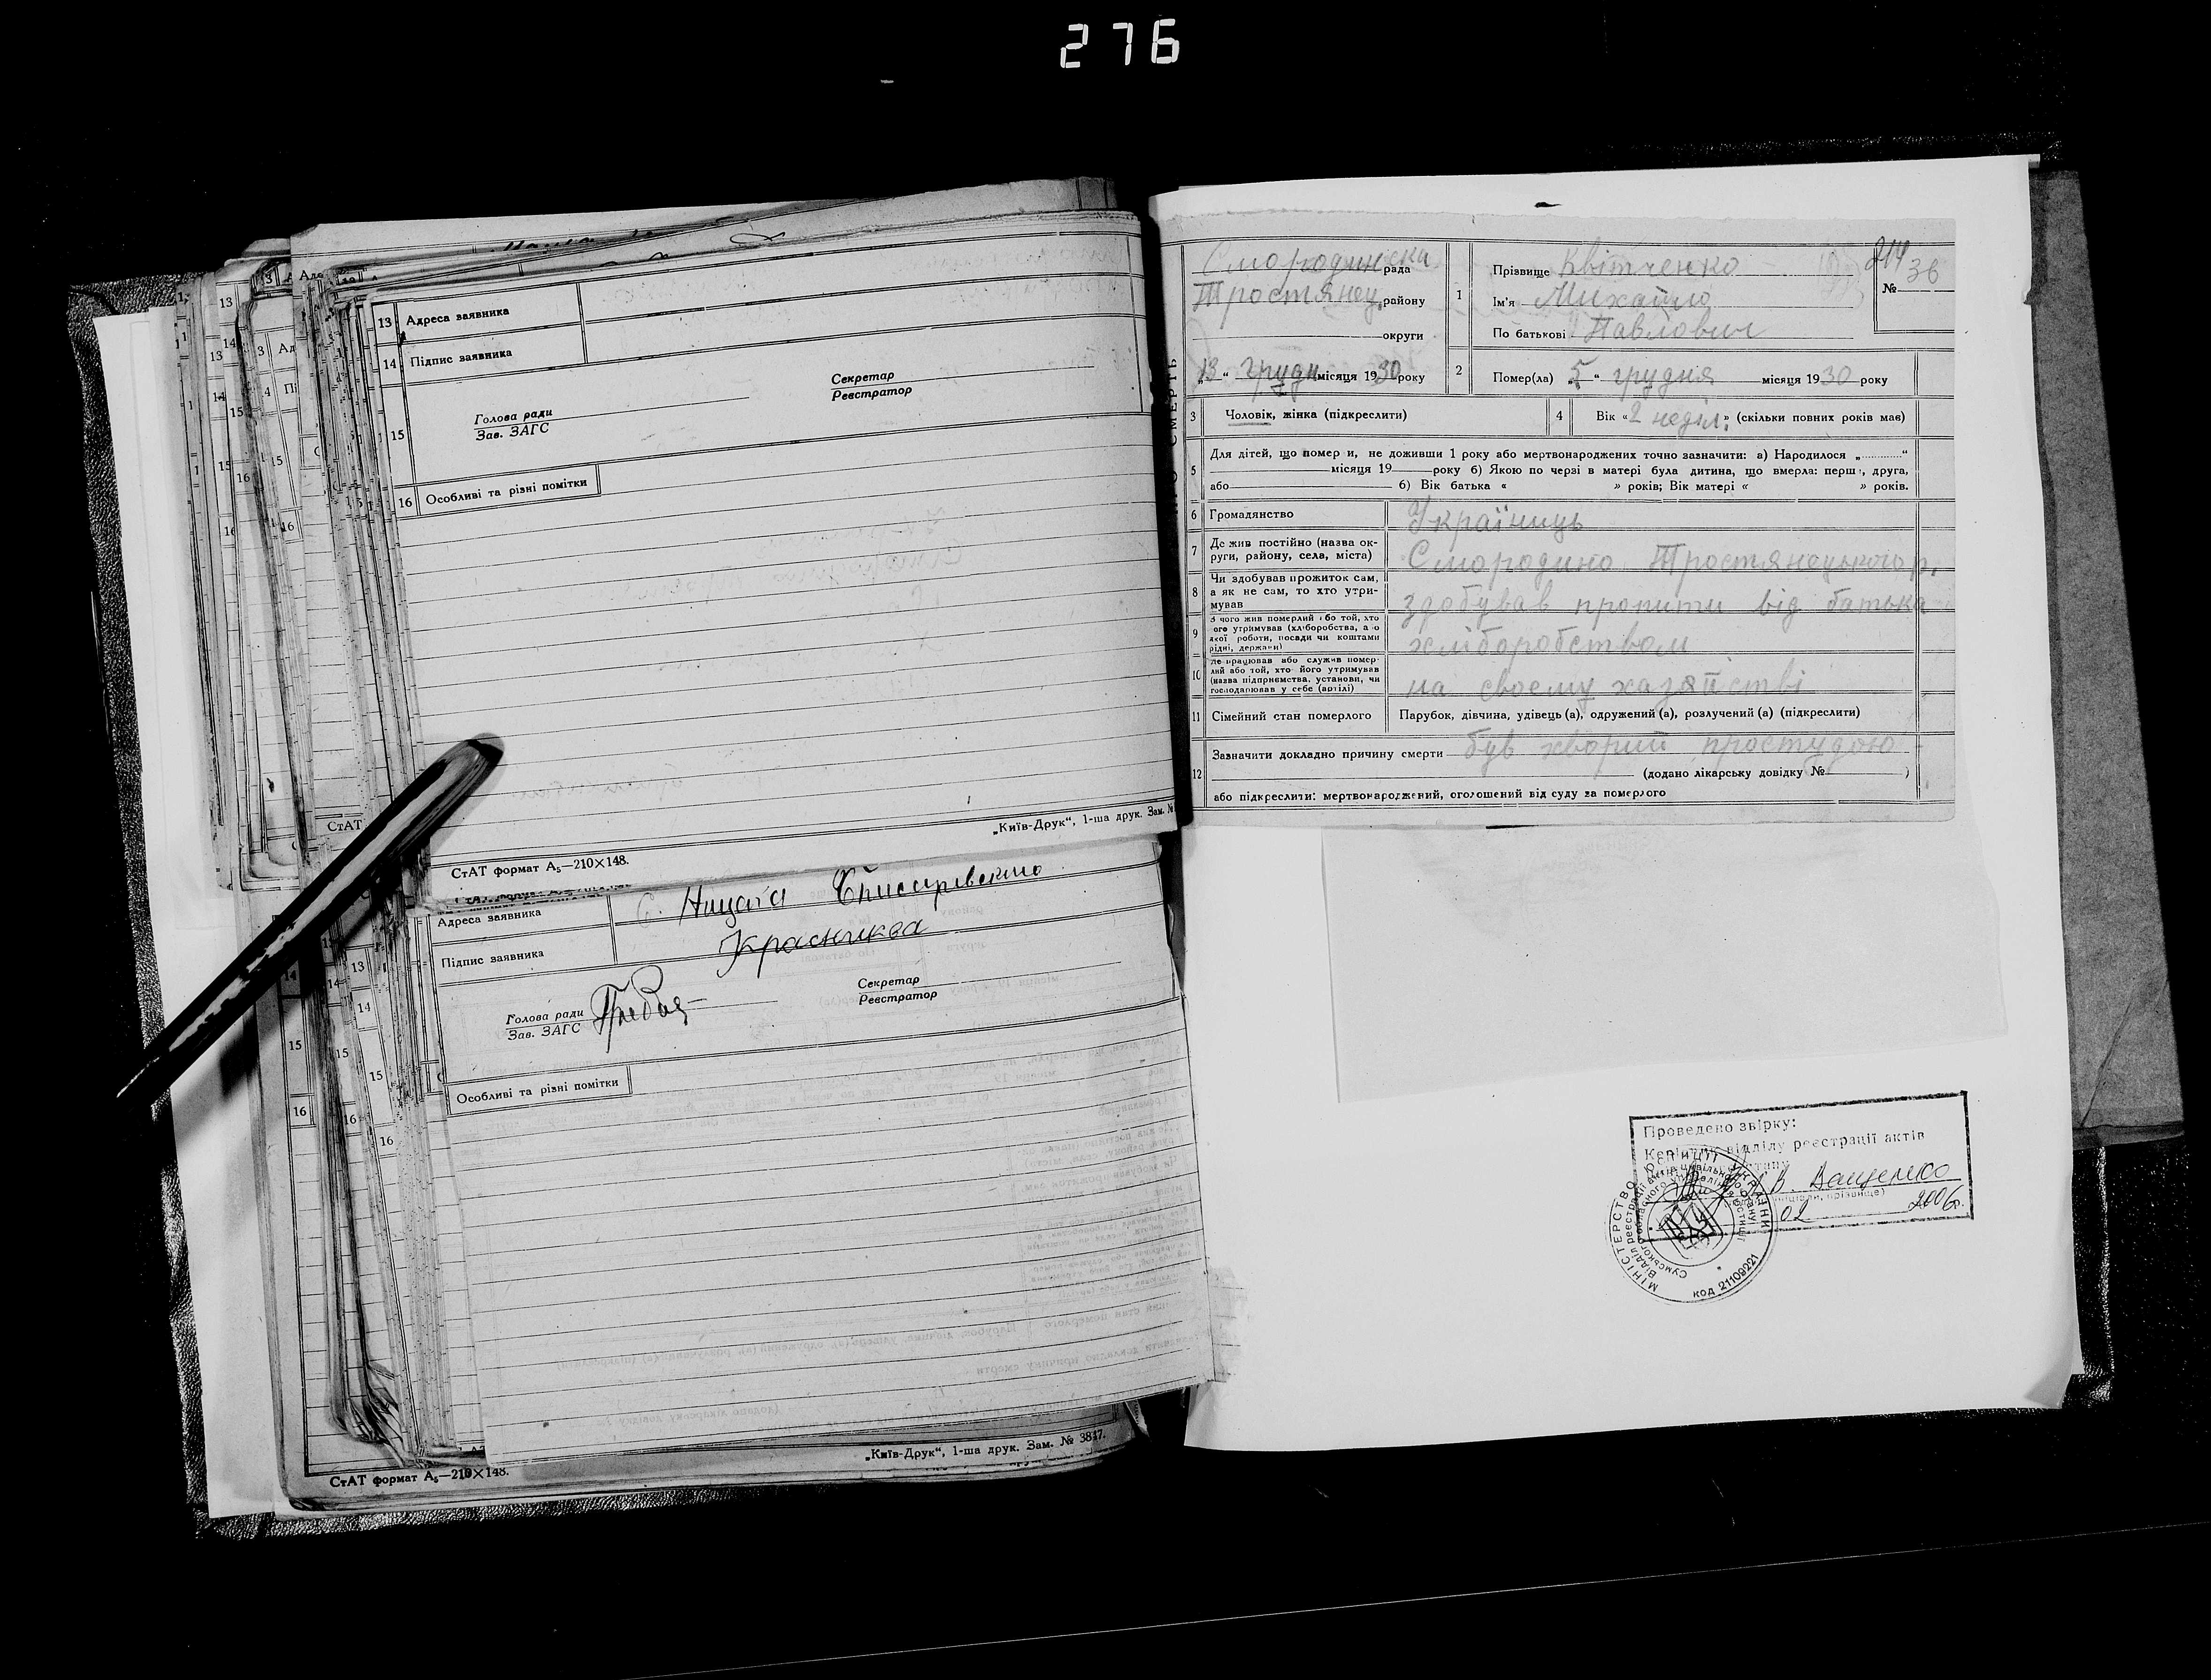 276
13 Адреса заявника
14 Підпис заявника
Секретар
Реєстратор
Голова ради
Зав. ЗАГС
15
16 Особливі та різні помітки
„Київ-Друк“, 1-ша друк. Зам. №
СтАТ формат А5—210×148.
Адреса заявника
Підпис заявника
Секретар
Реєстратор
Голова ради
Зав. ЗАГС
Особливі та різні помітки
„Київ-Друк“, 1-ша друк. Зам. № 3847.
СтАТ формат А5—210×148.
Смородинська рада
Тростянец. району
округи
13 “ грудн місяця 1930 року
1 Прізвище Квітченко
Ім'я Михайло
По батькові Павлович
214
№ 36
2 Помер(ла) 5 “ грудня місяця 1930 року
3 Чоловік, жінка (підкреслити)
4 Вік «2 неділ» (скільки повних років має)
5 Для дітей, що померли, не доживши 1 року або мертвонароджених точно зазначити: а) Народилося „ “
місяця 19 року б) Якою по черзі в матері була дитина, що вмерла: перша, друга,
або б) Вік батька « » років; Вік матері « » років.
6 Громадянство Україниць
7 Де жив постійно (назва округи, району, села, міста) Смородино Тростянецького р.
8 Чи здобував прожиток сам, а як не сам, то хто утримував здобував пропити від батька
9 З чого жив померлий або той, хто його утримував (хліборобства, а о якої роботи, посади чи коштами рідні, держави) хліборобством
10 Де працював або служив померлий або той, хто його утримував (назва підприємства, установи, чи господарював у себе (артілі) на своему хазяїстві
11 Сімейний стан померлого Парубок, дівчина, удівець (а), одружений (а), розлучений (а) (підкреслити)
12 Зазначити докладно причину смерти був хворий простудою
(додано лікарську довідку № )
або підкреслити: мертвонароджений, оголошений від суду за померлого
Проведено звірку:
Керівник відділу реєстрації актів
В. Ващенко
02 2006р.
МІНІСТЕРСТВО ЮСТИЦІЇ УКРАЇНИ
код 21109221